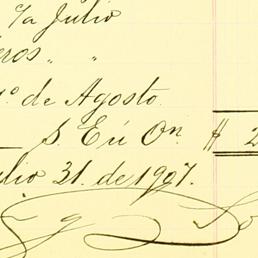 c/a Julio
eros " "
1º de Agosto
S. E ú On. $ 2
lio 31. de 1907.